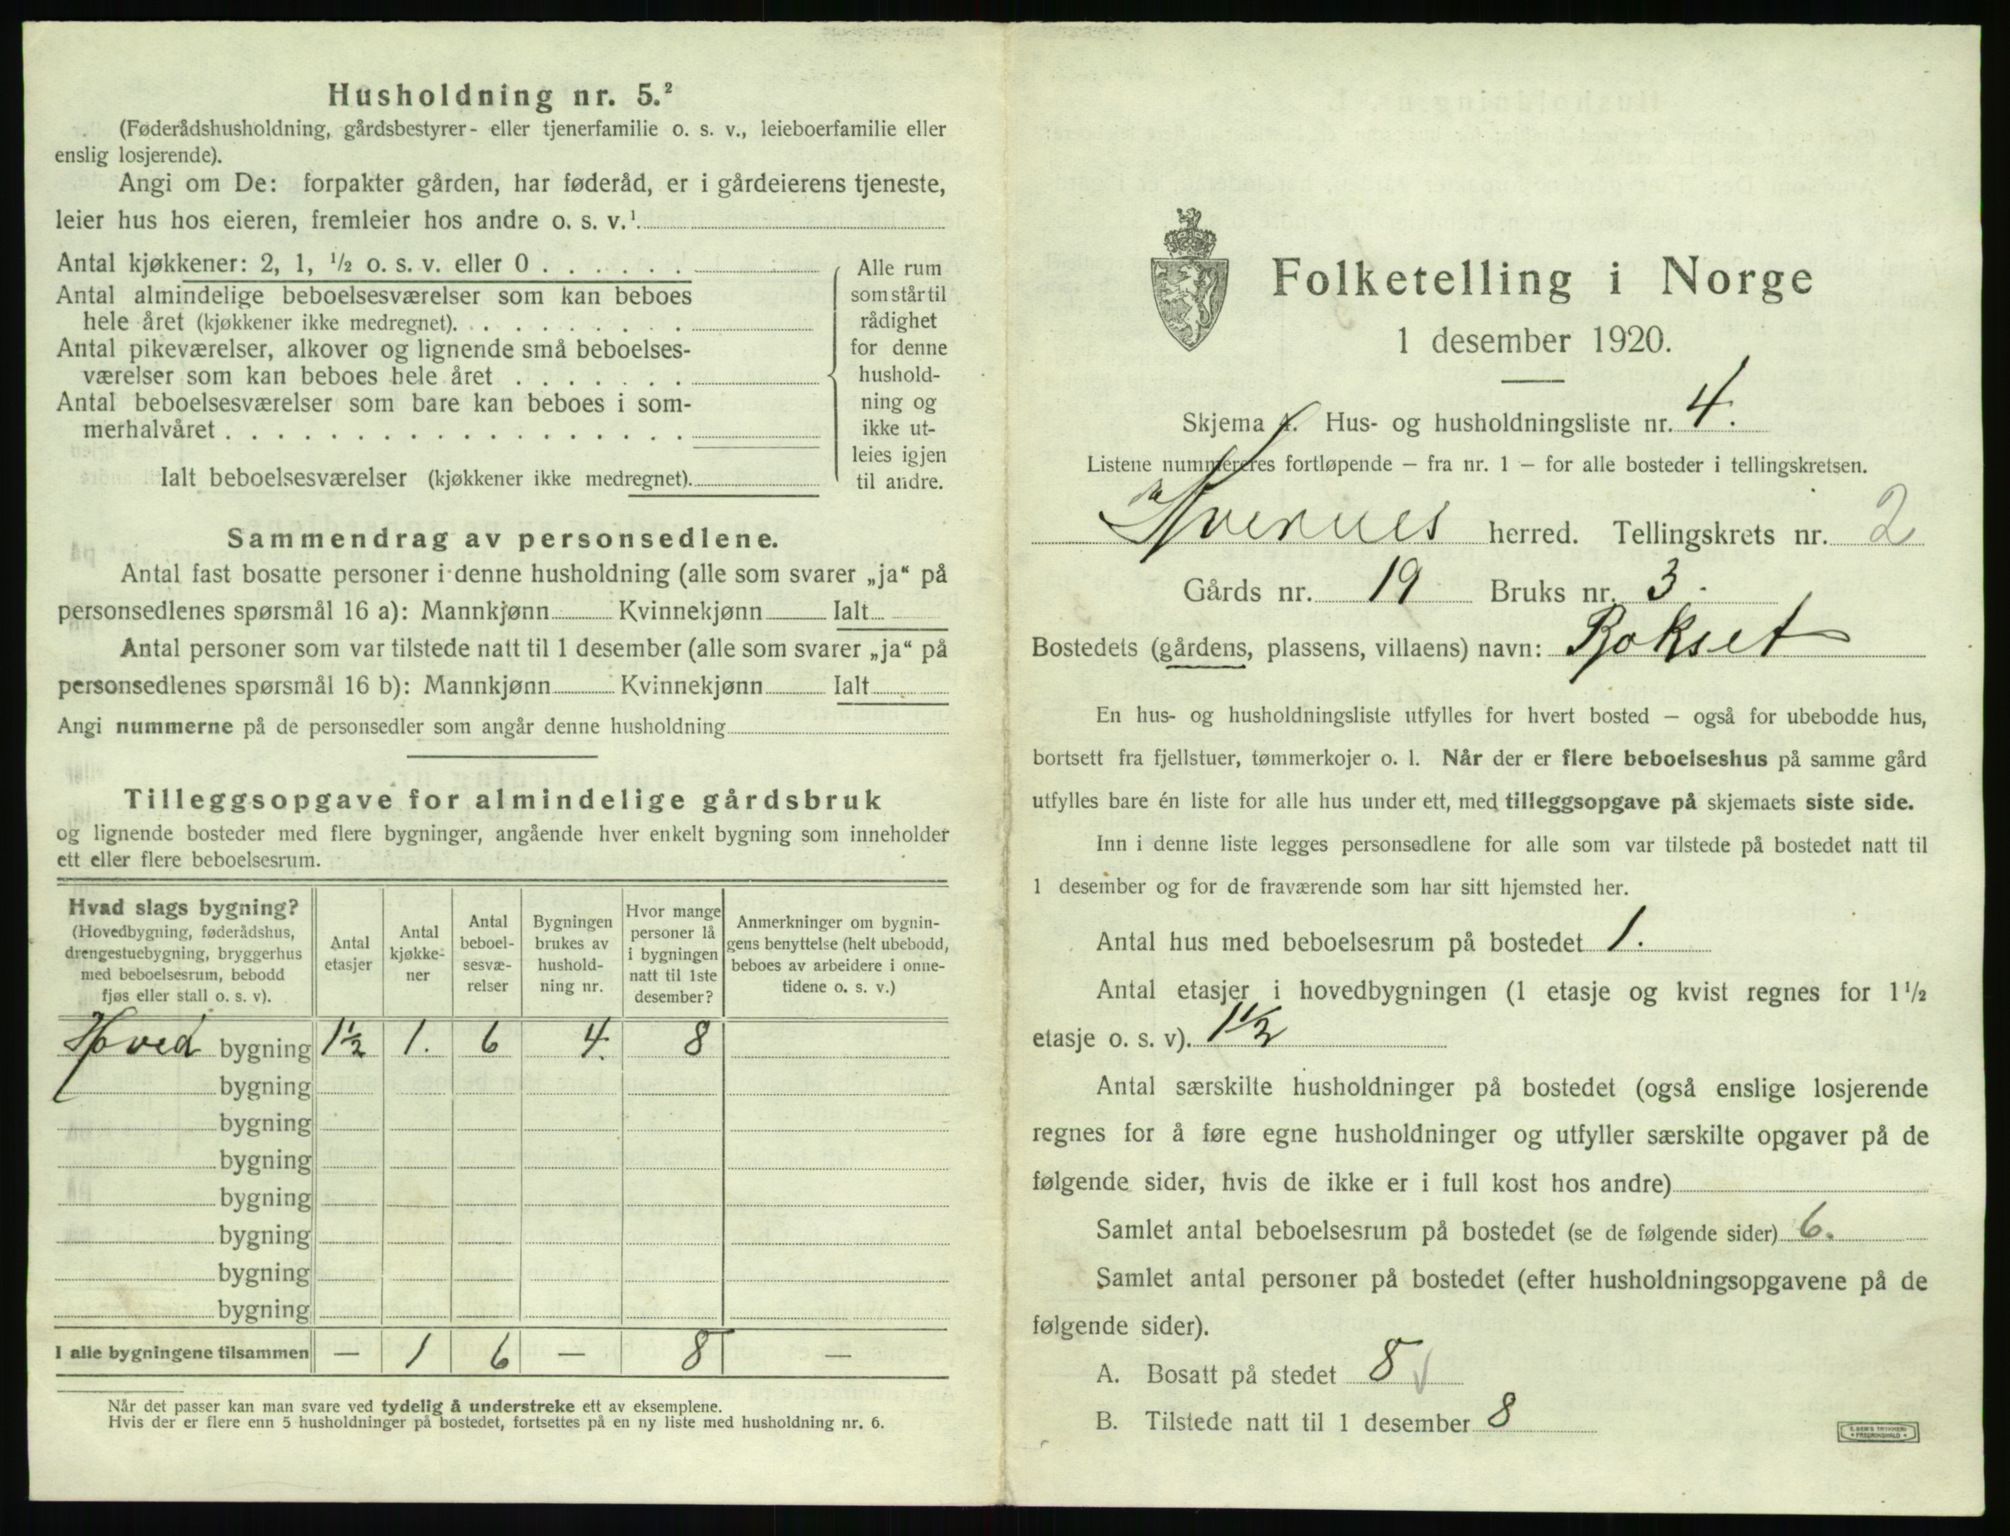 Husholdning nr. 5.²
(Føderådshusholdning, gårdsbestyrer- eller tjenerfamilie o. s. v., leieboerfamilie eller
enslig losjerende).
Angi om De: forpakter gården, har føderåd, er i gårdeierens tjeneste,
leier hus hos eieren, fremleier hos andre o. s. v.¹
Antal kjøkkener: 2, 1, ¹/₂ o. s. v. eller 0 . . . . . .
Antal almindelige beboelsesværelser som kan beboes
hele året (kjøkkener ikke medregnet). . . . . . . . .
Antal pikeværelser, alkover og lignende små beboelses-
værelser som kan beboes hele året . . . . . . .
Antal beboelsesværelser som bare kan beboes i som-
merhalvåret . . . . . . . . . . . . . . . . . .
Ialt beboelsesværelser (kjøkkener ikke medregnet).
Alle rum
som står til
rådighet
for denne
hushold-
ning og
ikke ut-
leies igjen
til andre.
Sammendrag av personsedlene.
Antal fast bosatte personer i denne husholdning (alle som svarer „ja“ på
personsedlenes spørsmål 16 a): Mannkjønn Kvinnekjønn Ialt
Antal personer som var tilstede natt til 1 desember (alle som svarer „ja“ på
personsedlenes spørsmål 16 b): Mannkjønn Kvinnekjønn Ialt
Angi nummerne på de personsedler som angår denne husholdning
Tilleggsopgave for almindelige gårdsbruk
og lignende bosteder med flere bygninger, angående hver enkelt bygning som inneholder
ett eller flere beboelsesrum.
Hvad slags bygning?
(Hovedbygning, føderådshus,
drengestuebygning, bryggerhus
med beboelsesrum, bebodd
fjøs eller stall o. s. v).
Antal
etasjer
Antal
kjøkke-
ner
Antal
beboel-
sesvæ-
relser
Bygningen
brukes av
hushold-
ning nr.
Hvor mange
personer lå
i bygningen
natt til 1ste
desember?
Anmerkninger om bygnin-
gens benyttelse (helt ubebodd,
beboes av arbeidere i onne-
tidene o. s. v.)
Hoved bygning 1½ 1. 6 4. 8
bygning
bygning
bygning
bygning
bygning
bygning
bygning
I alle bygningene tilsammen — 1 6 — 8 —
Når det passer kan man svare ved tydelig å understreke ett av eksemplene.
Hvis der er flere enn 5 husholdninger på bostedet, fortsettes på en ny liste med husholdning nr. 6.
Folketelling i Norge
1 desember 1920.
Skjema 1. Hus- og husholdningsliste nr. 4.
Listene nummereres fortløpende – fra nr. 1 – for alle bosteder i tellingskretsen.
Kvernes herred. Tellingskrets nr. 2
Gårds nr. 19 Bruks nr. 3.
Bostedets (gårdens, plassens, villaens) navn: Rokset
En hus- og husholdningsliste utfylles for hvert bosted – også for ubebodde hus,
bortsett fra fjellstuer, tømmerkojer o. l. Når der er flere beboelseshus på samme gård
utfylles bare én liste for alle hus under ett, med tilleggsopgave på skjemaets siste side.
Inn i denne liste legges personsedlene for alle som var tilstede på bostedet natt til
1 desember og for de fraværende som har sitt hjemsted her.
Antal hus med beboelsesrum på bostedet 1.
Antal etasjer i hovedbygningen (1 etasje og kvist regnes for 1¹/₂
etasje o. s. v). 1½
Antal særskilte husholdninger på bostedet (også enslige losjerende
regnes for å føre egne husholdninger og utfyller særskilte opgaver på de
følgende sider, hvis de ikke er i full kost hos andre)
Samlet antal beboelsesrum på bostedet (se de følgende sider) 6.
Samlet antal personer på bostedet (efter husholdningsopgavene på de
følgende sider).
A. Bosatt på stedet 8
B. Tilstede natt til 1 desember 8